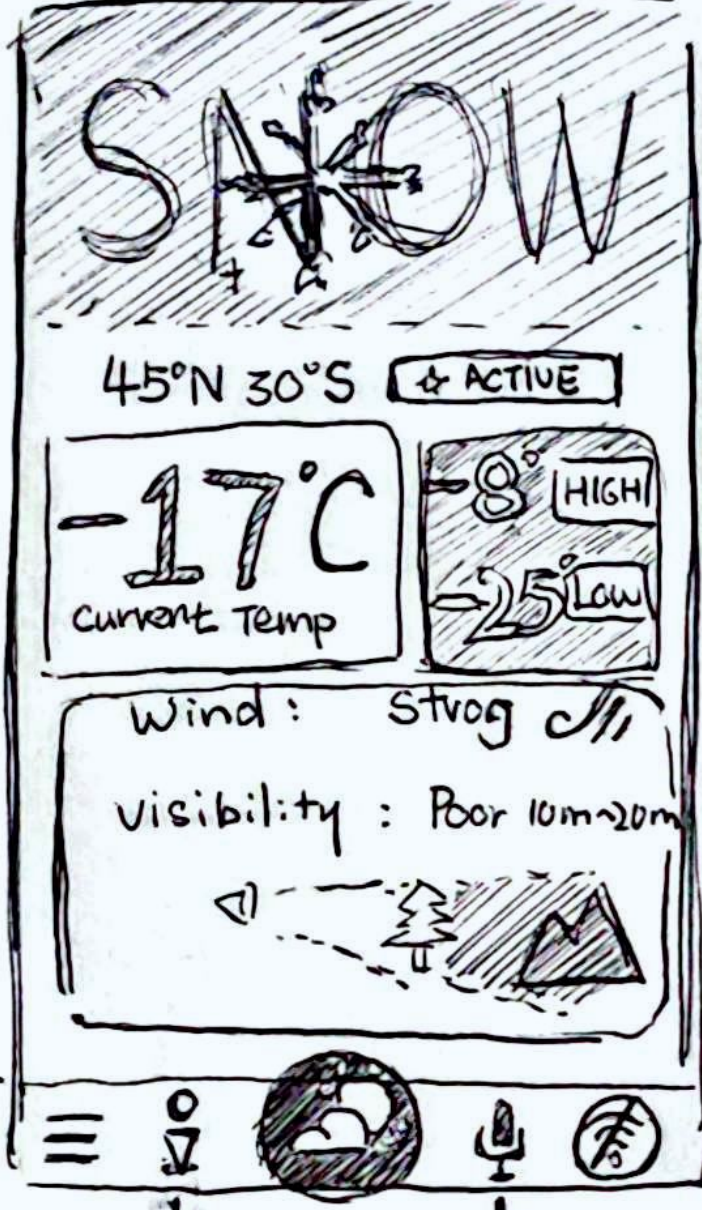 SNOW
45°N 30°S ☆ ACTIVE
-17°C
Current Temp
-8° HIGH
-25° LOW
Wind: Strog
Visibility: Poor 10m~20m